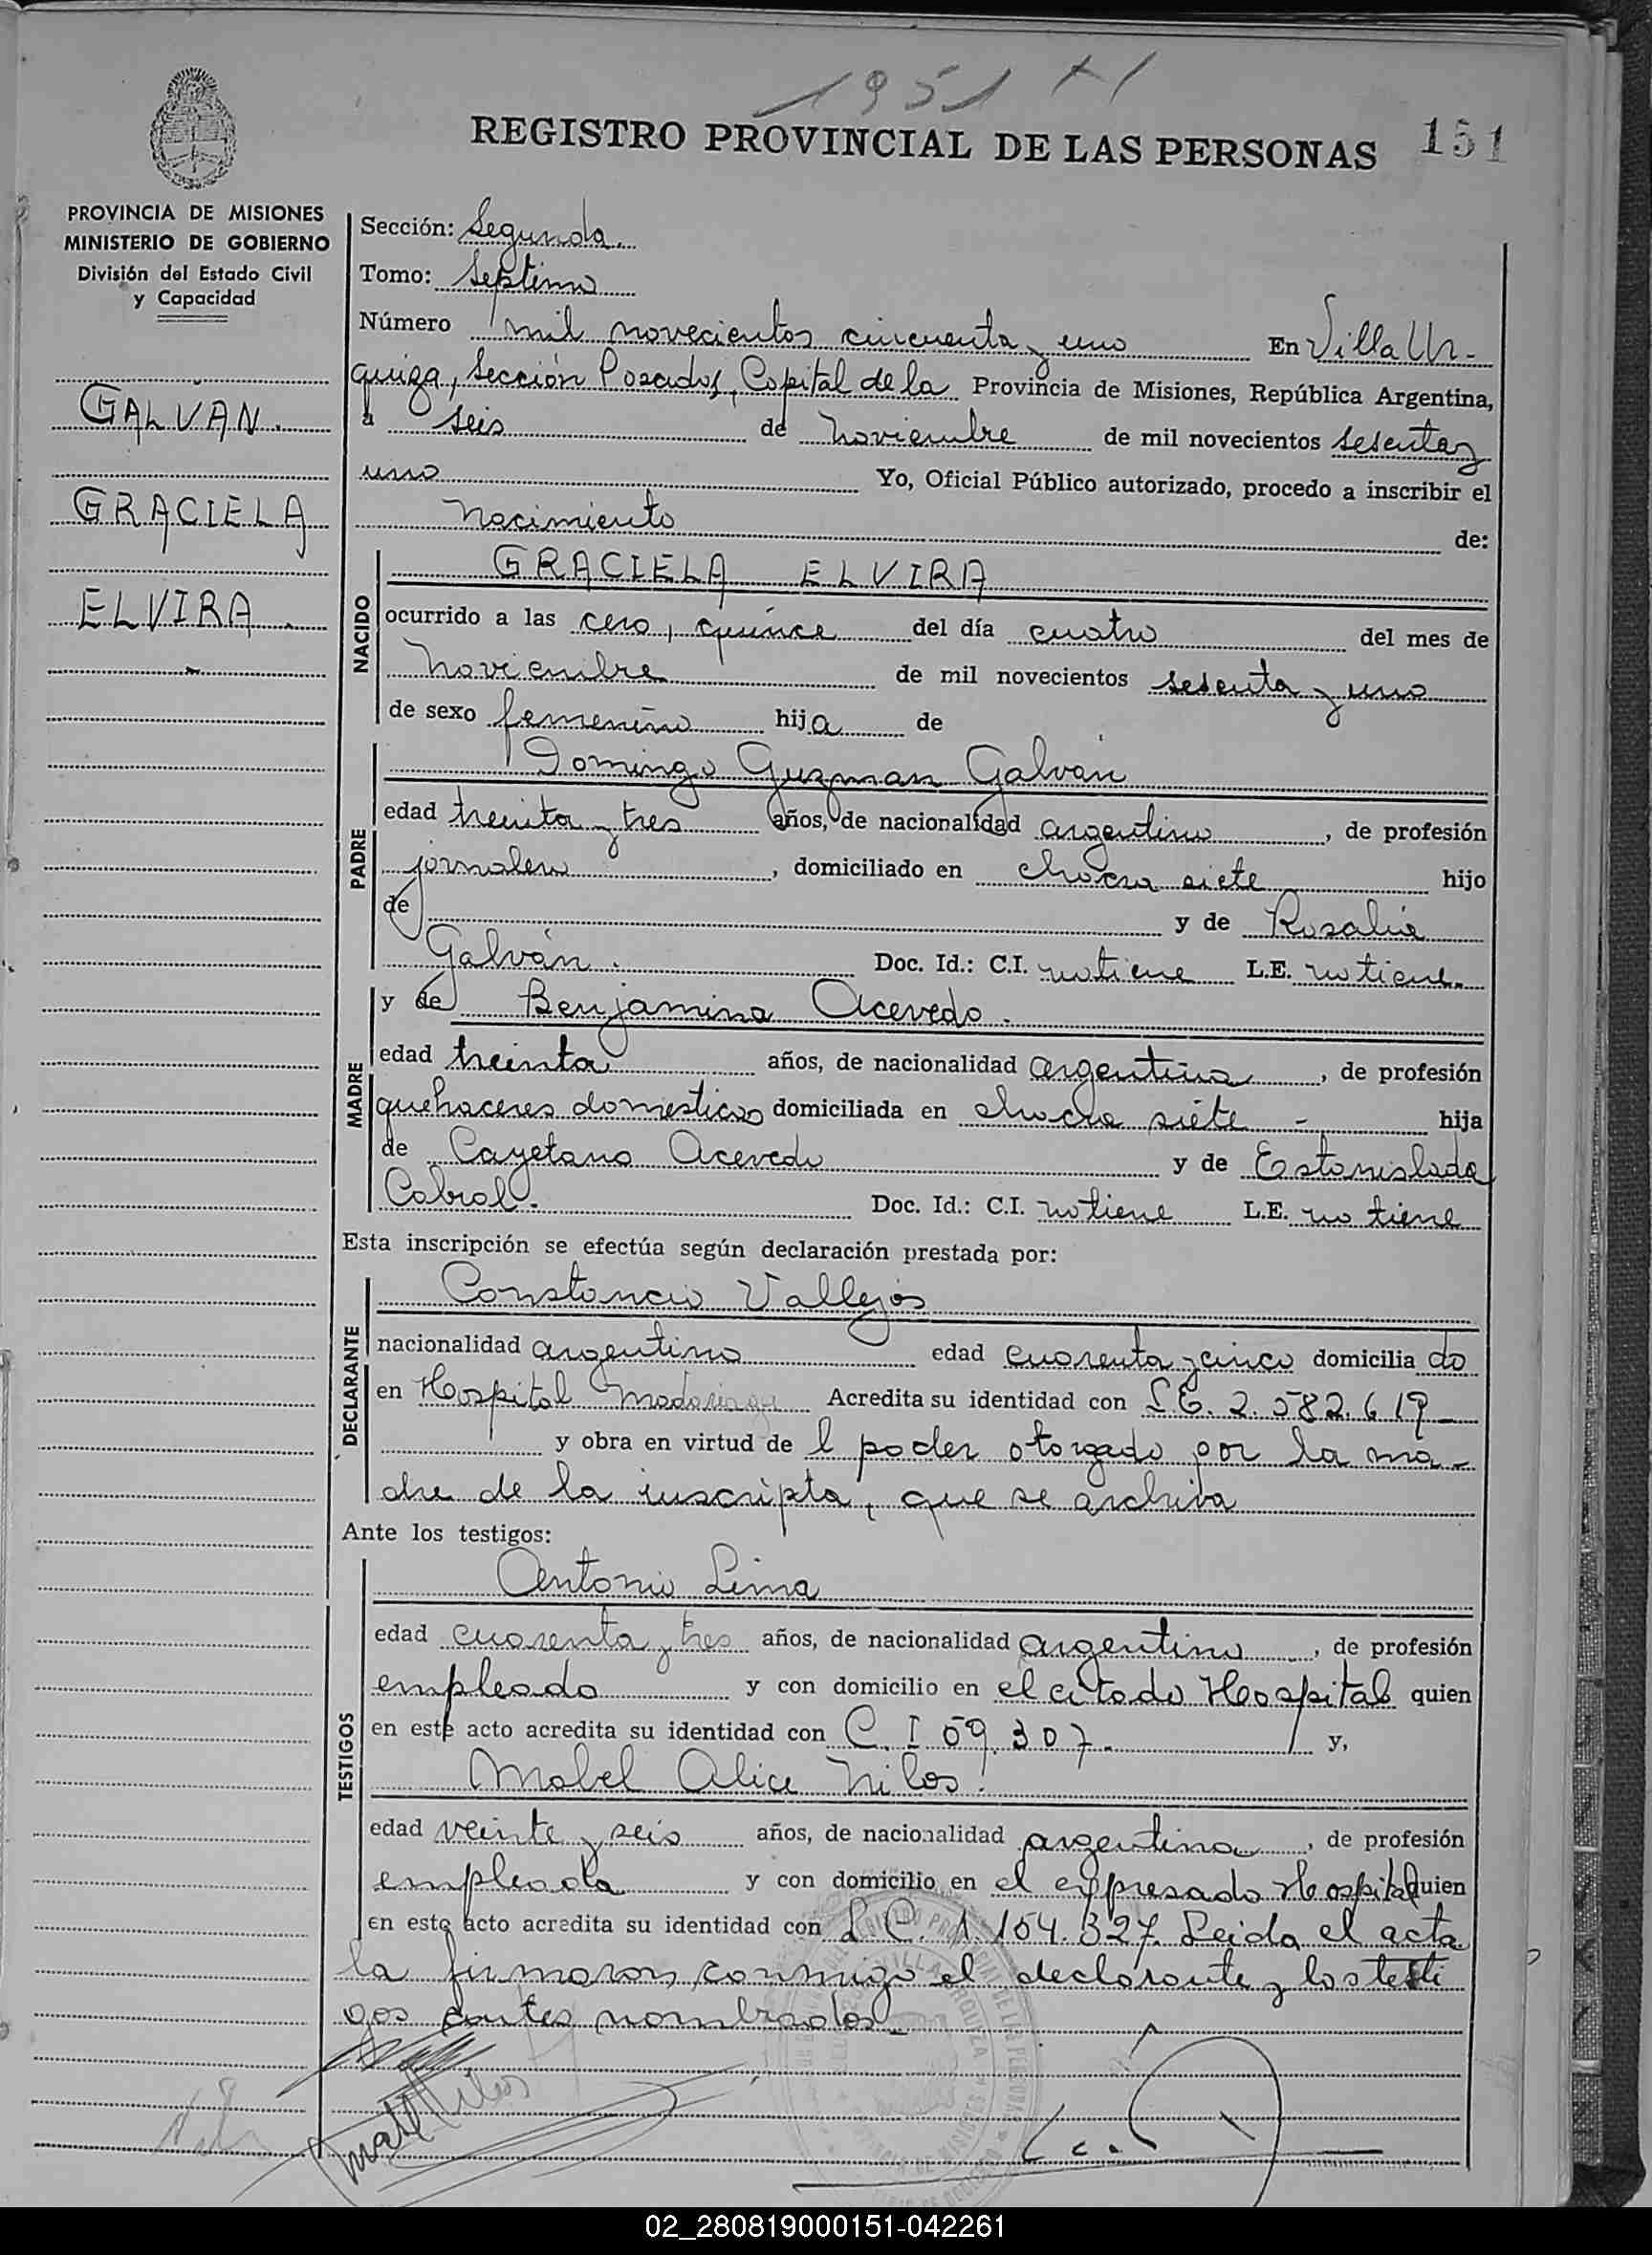 1951 XI
REGISTRO PROVINCIAL DE LAS PERSONAS 151
PROVINCIA DE MISIONES
MINISTERIO DE GOBIERNO
División del Estado Civil
y Capacidad
GALVAN.
GRACIELA
ELVIRA.
Sección: Segunda.
Tomo: Septimo
Número mil novecientos cincuenta y uno En Villa Ur-
quiza, Sección Posadas, Capital de la Provincia de Misiones, República Argentina,
a seis de noviembre de mil novecientos sesenta y
uno Yo, Oficial Público autorizado, procedo a inscribir el
nacimiento de:
NACIDO
GRACIELA ELVIRA
ocurrido a las cero, quince del día cuatro del mes de
noviembre de mil novecientos sesenta y uno
de sexo femenino hija de
PADRE
Domingo Guzman Galván
edad treinta y tres años, de nacionalidad argentino, de profesión
jornalero, domiciliado en chacra siete hijo
de y de Rosalia
Galván. Doc. Id.: C.I. no tiene L.E. no tiene.
MADRE
y de Benjamina Acevedo.
edad treinta años, de nacionalidad argentina, de profesión
quehaceres domesticos domiciliada en chacra siete - hija
de Cayetano Acevedo y de Estanislada
Cabral. Doc. Id.: C.I. no tiene L.E. no tiene
Esta inscripción se efectúa según declaración prestada por:
DECLARANTE
Constancio Vallejos
nacionalidad argentino edad cuarenta y cinco domicilia do
en Hospital Madariaga Acredita su identidad con L.E. 2.582.619
y obra en virtud de l poder otorgado por la ma-
dre de la inscripta, que se archiva
Ante los testigos:
TESTIGOS
Antonio Lima
edad cuarenta y tres años, de nacionalidad argentino, de profesión
empleado y con domicilio en el citado Hospital quien
en este acto acredita su identidad con C. I 09.307. y,
Mabel Alice Nilos.
edad veinte y seis años, de nacionalidad argentina, de profesión
empleada y con domicilio en el expresado Hospital quien
en este acto acredita su identidad con L.C. 1.154.327. Leida el acta
la firmaron conmigo el declarante y los testi
gos antes nombrados
02_280819000151-042261